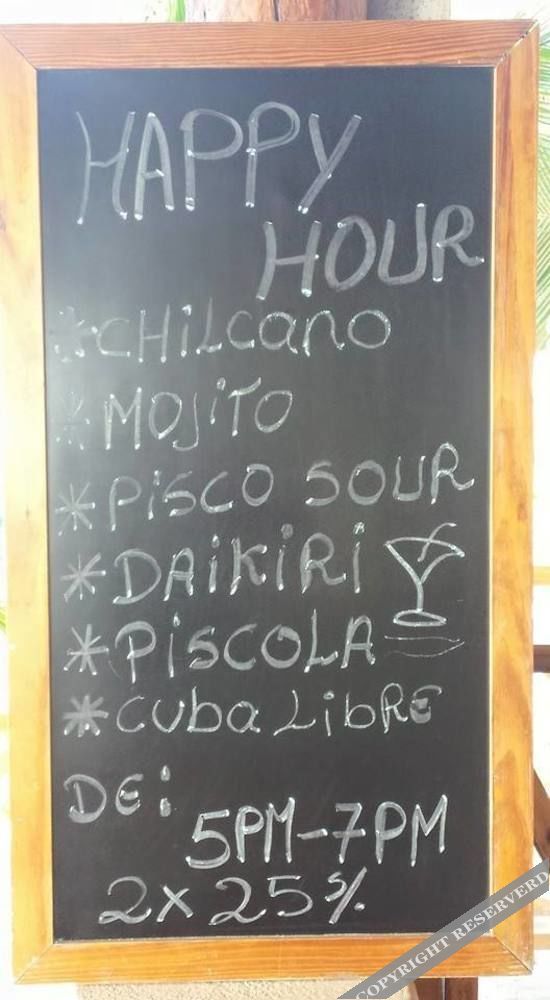 HAPPY
HOUR
* CHiLcano
* MOJiTO
* PiSCO SOUR
* DAiKiRi
* PiSCOLA
* cuba LibRE
DE:
5PM-7PM
2x25 s/.
COPYRIGHT RESERVERD